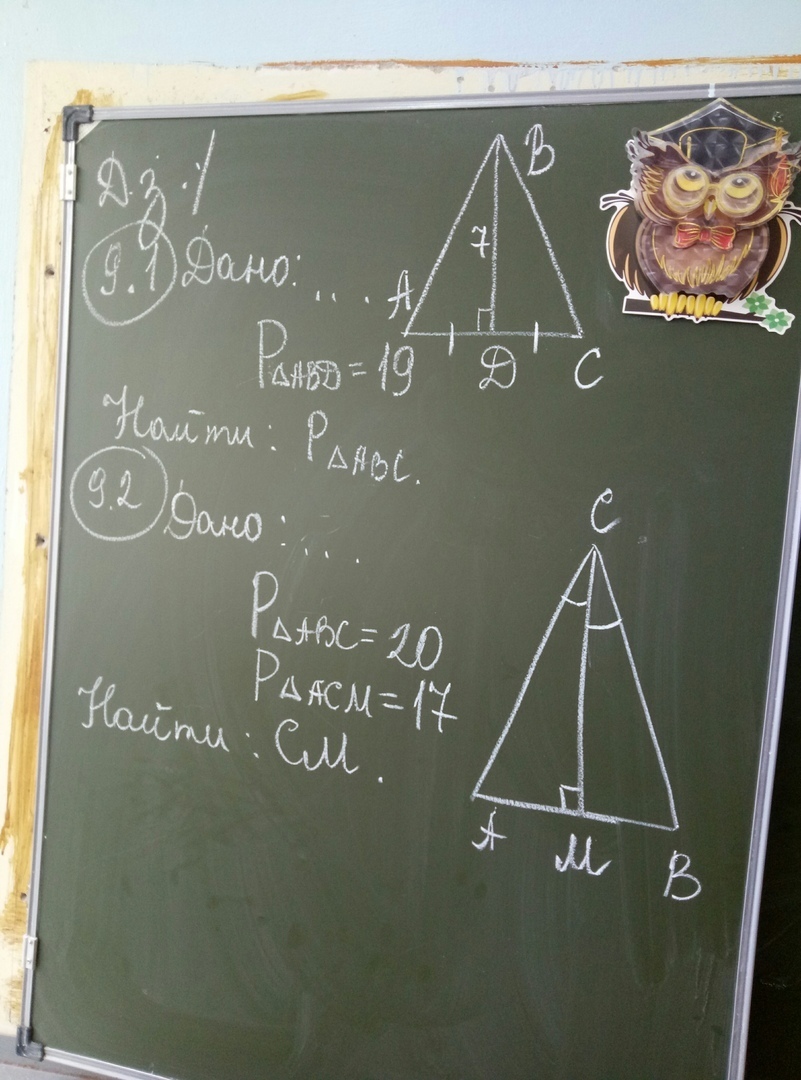 Д.з.
9.1 Дано: ....
P△ABD = 19
Найти: P△ABC.
B
7
A
D
C
9.2 Дано: ...
P△ABC = 20
P△ACM = 17
Найти: CM.
C
A
M
B